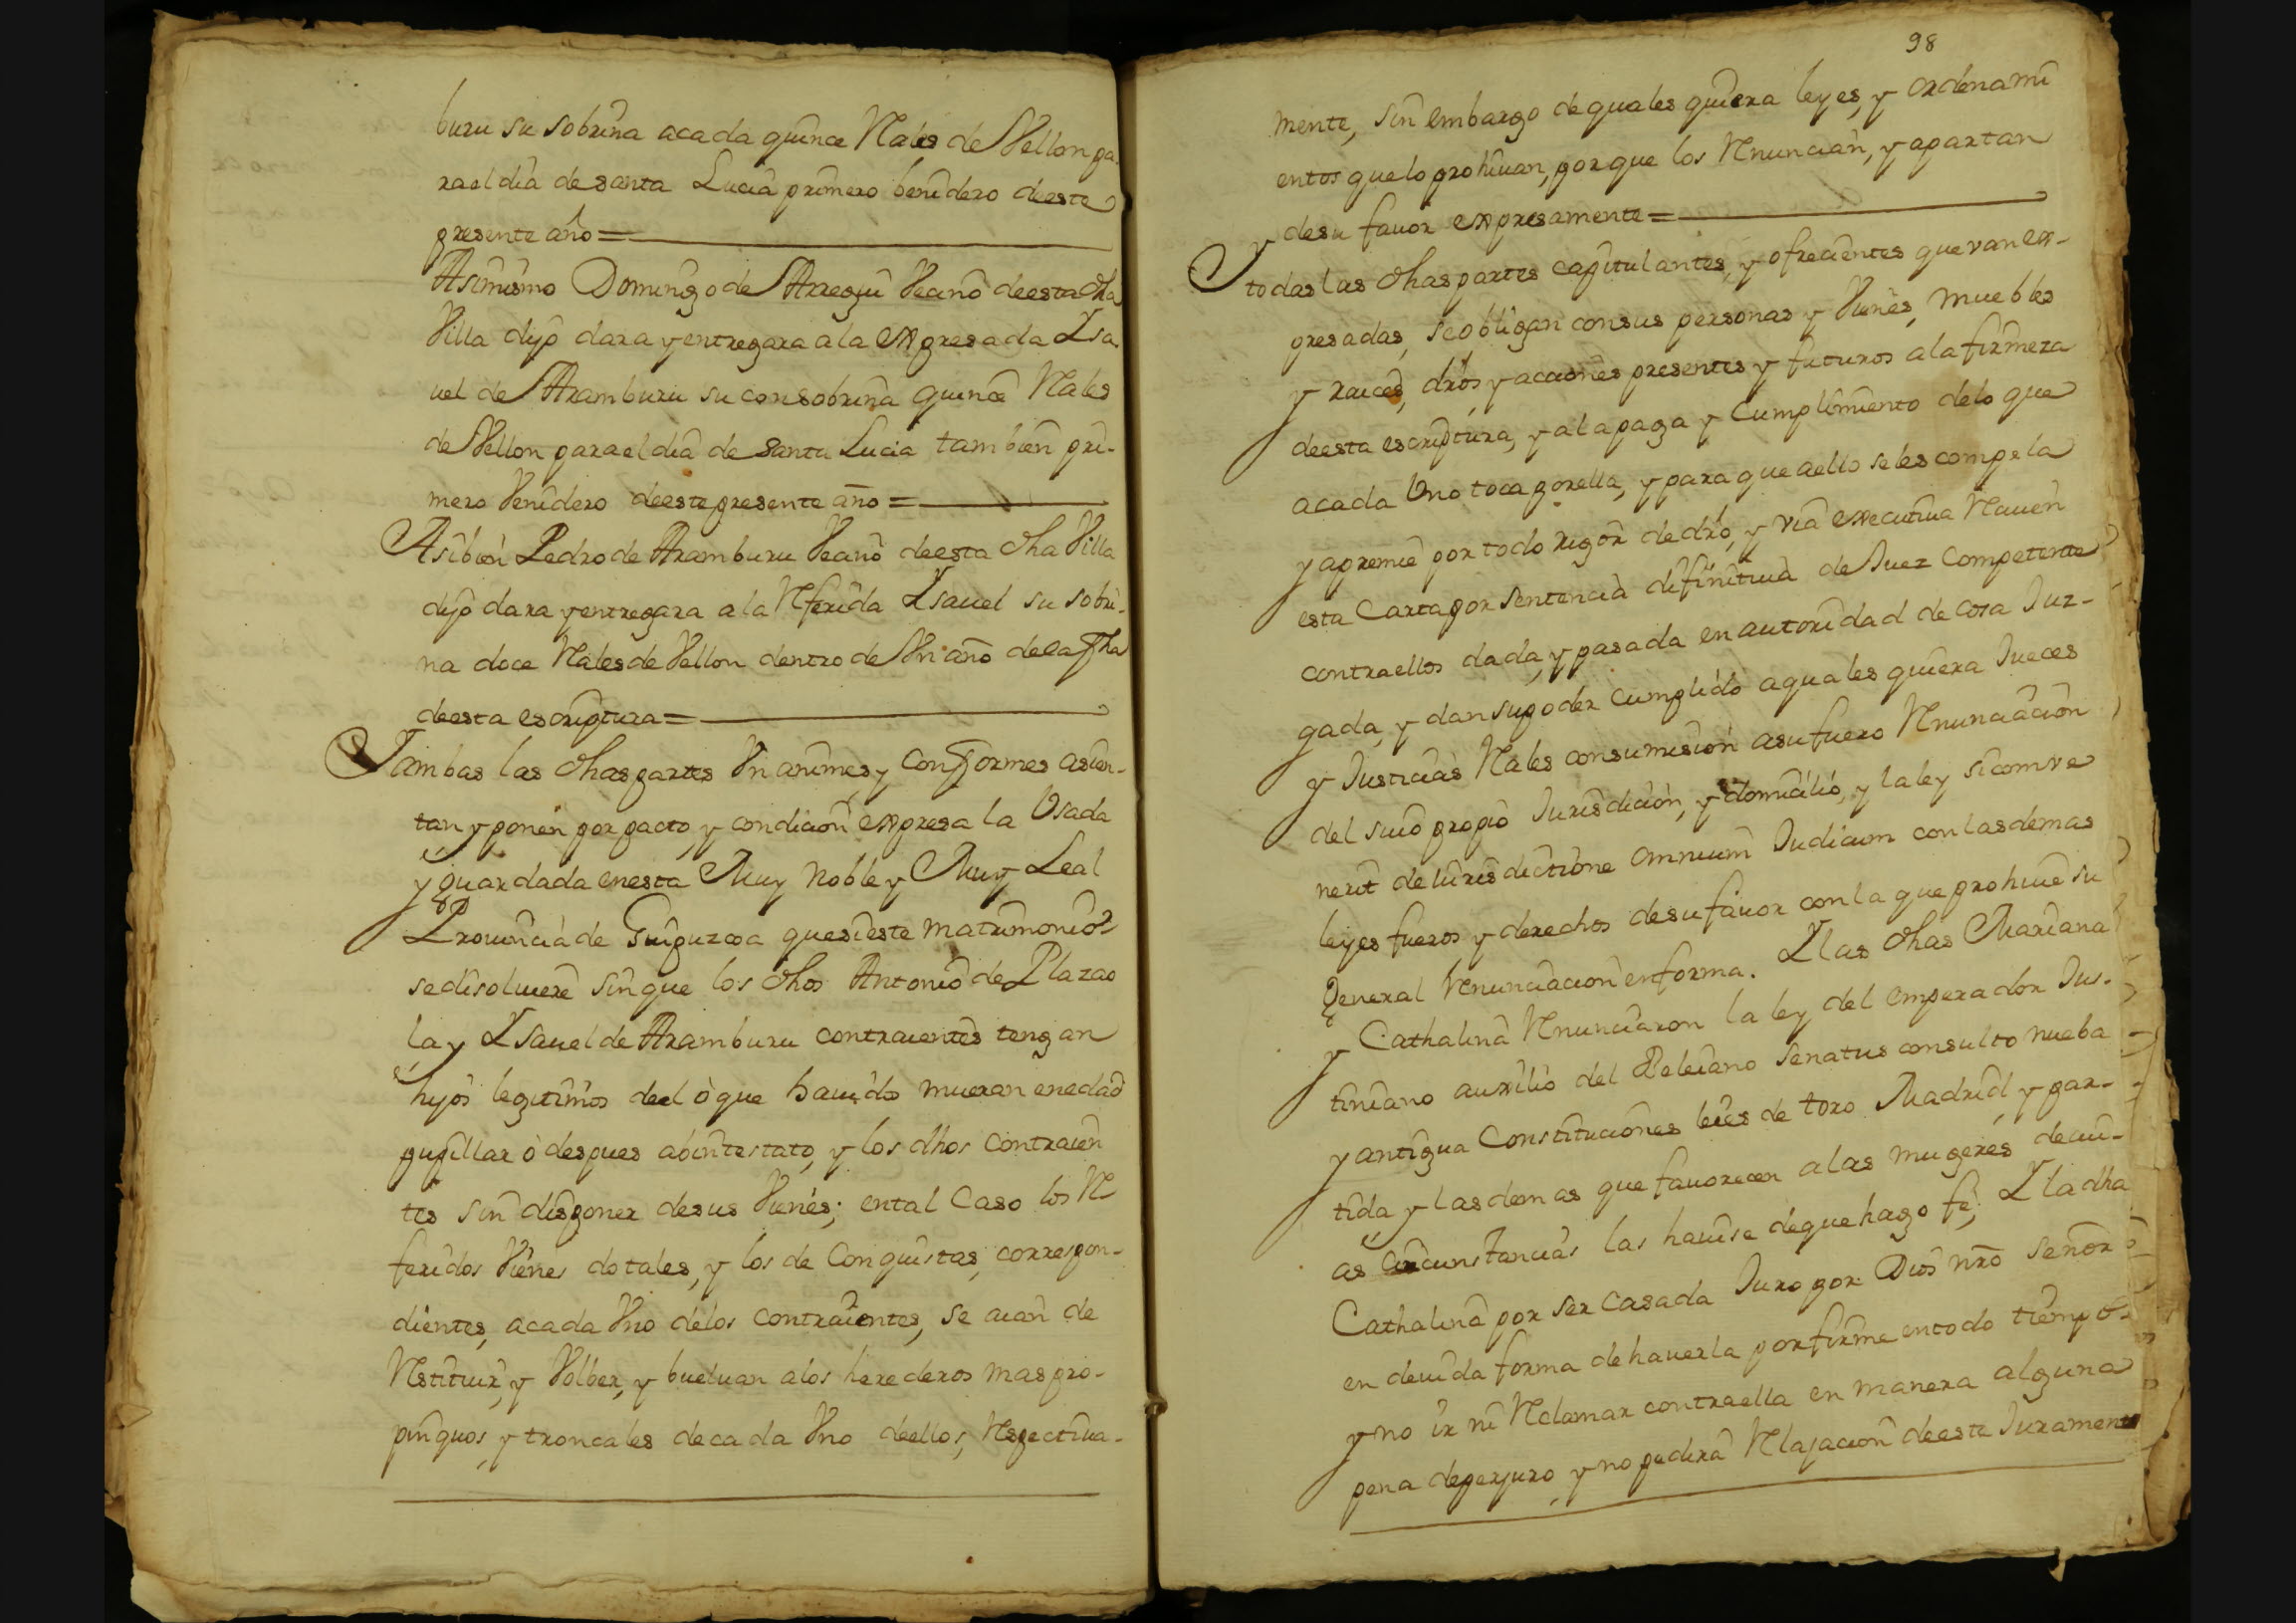 buru su sobrina acada quince Rales de Vellon pa-
ra el dia de santa Lucia primero benidero deeste
presente año =
Asimismo Domingo de Arregui Vecino deesta dha
Villa dijo dara y entregara a la expresada Isa-
uel de Aramburu su consobrina quince Rales
de Vellon para el dia de santa Lucia tambien pri-
mero Venidero deeste presente año =
Asibien Pedro de Aramburu Vecino deesta dha Villa
dijo dara y entregara a la Referida Isauel su sobri-
na doce Rales de Vellon dentro de Un año de la fha
deesta escriptura =
Y ambas las dhas partes Unanimes, y Conformes asien-
tan, y ponen por pacto, y condicion expresa la Usada
y guardada en esta Muy Noble y Muy Leal
Prouincia de Guipuzcoa que si este matrimonio
se disoluiere sin que los dhos Antonio de Plazao
la, y Isauel de Aramburu contraientes tengan
hijos legitimos deel ò que hauidos mueran en edad
pupillar ò despues abintestato, y los dhos Contraien
tes sin disponer de sus Vienes; en tal Caso los Re
feridos Vienes dotales, y los de Conquistas, correspon-
dientes, acada Uno de los contraientes, se aian de
Restituir, y Volber, y bueluan alos herederos mas pro-
pinquos, y troncales de cada Uno deellos, Respectiua-
98
mente, sin embargo de quales quiera leyes, y ordenami
entos que lo prohiuan, porque los Renuncian, y apartan
de su fauor expresamente =
Y todas las dhas partes capitulantes, y ofrecientes que van ex-
presadas, se obligan con sus personas y Vienes, muebles
y raices, dros, y acciones presentes y futuros a la firmeza
deesta escriptura, y a la paga y Cumplimiento de lo que
acada Uno toca por ella, y para que aello se les compela
y apremie por todo rigor de dro, y via executiua Reciuen
esta Carta por Sentencia difinitiua de Juez Competente
contra ellos dada, y pasada en autoridad de cosa Juz-
gada, y dan su poder cumplido a quales quiera Jueces
y Justicias Rales con sumision a su fuero Renunciacion
del suio propio Jurisdicion, y domicilio, y la ley si comve
nerit de iurisdictione omnium Judicum con las demas
leyes fueros, y derechos de su fauor con la que prohiue su
general Renunciacion en forma. Y las dhas Mariana
y Cathalina Renunciaron la ley del emperador Jus-
tiniano auxilio del Beleiano senatus consulto nueba
y antigua Constituciones leies de toro Madrid, y par-
tida, y las demas que fauorecen a las mugeres de cui-
as circunstancias las hauise de que hago fe, Y la dha
Cathalina por ser casada Juro por Dios nro señor
en deuida forma de hauerla por firme en todo tiempo
y no ir ni Reclamar contra ella en manera alguna
pena de perjuro, y no pedira Relajacion deeste Jurament